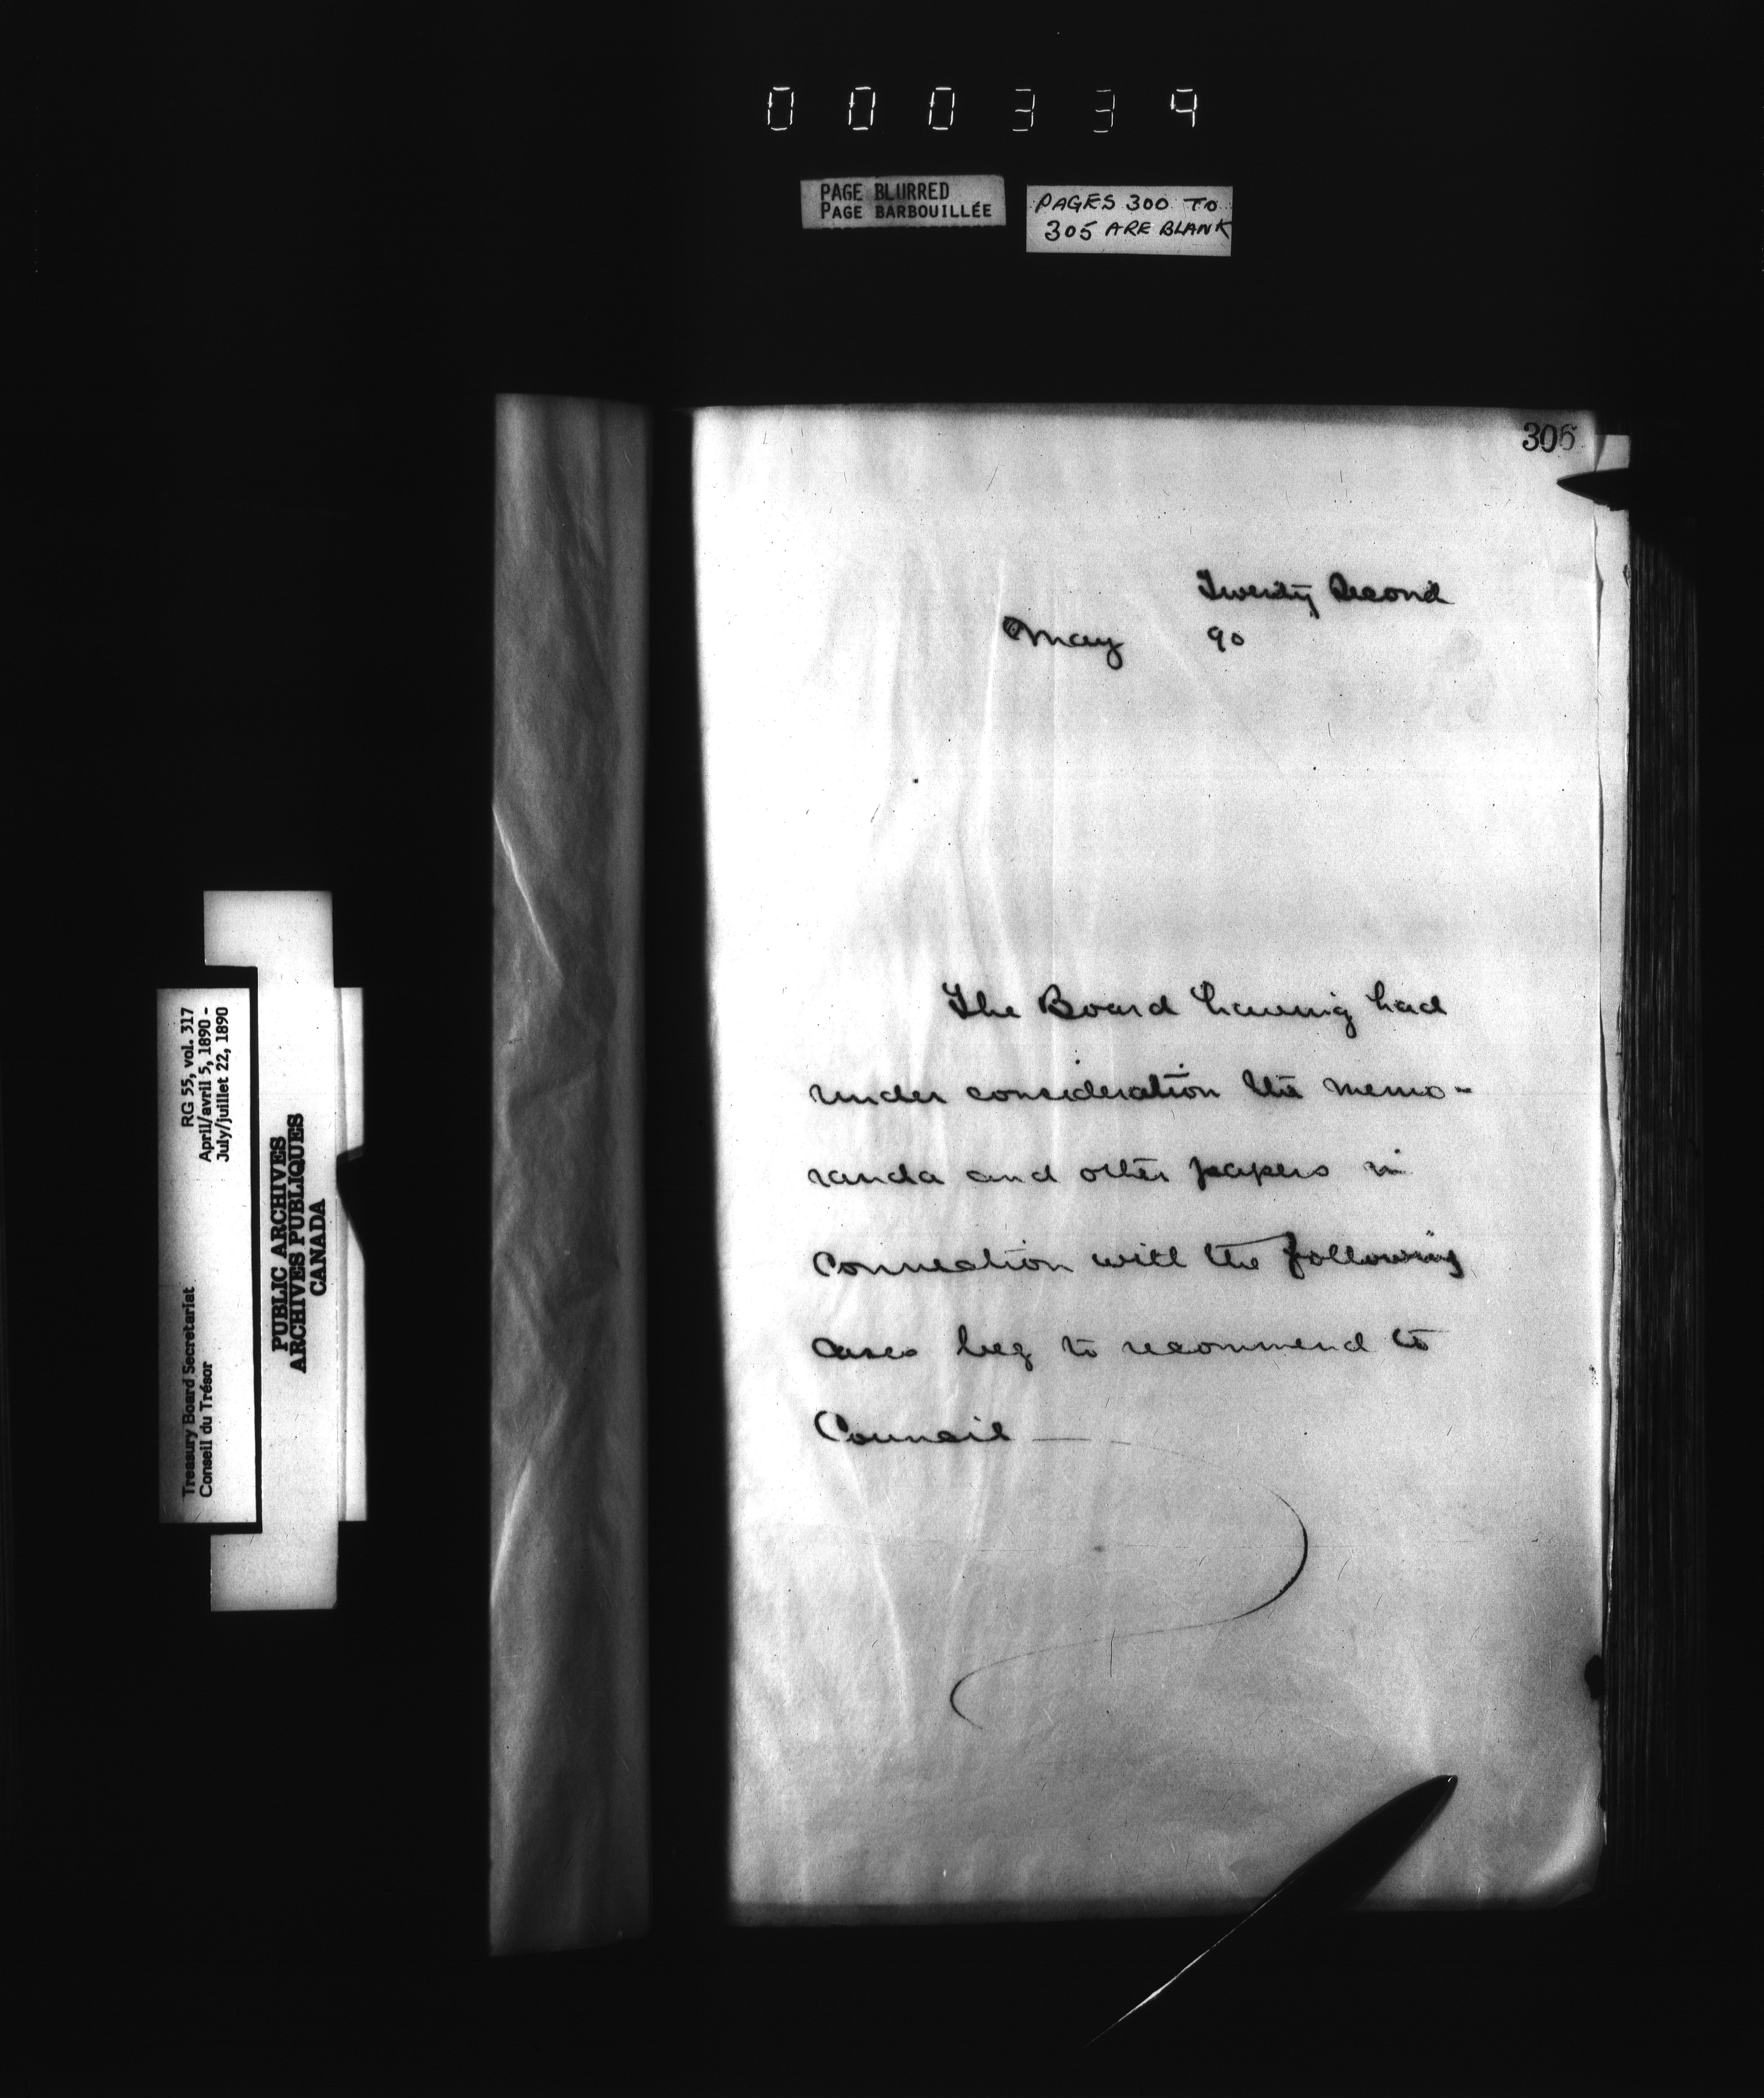 000339
PAGE BLURRED
PAGE BARBOUILLÉE
PAGES 300 TO
305 ARE BLANK
306
Twenty Second
May 90
The Board having had
under consideration the memo-
randa and other papers in
connection with the following
cases beg to recommend to
Council —
Treasury Board Secretariat RG 55, vol. 317
Conseil du Trésor April/avril 5, 1890 -
July/juillet 22, 1890
PUBLIC ARCHIVES
ARCHIVES PUBLIQUES
CANADA